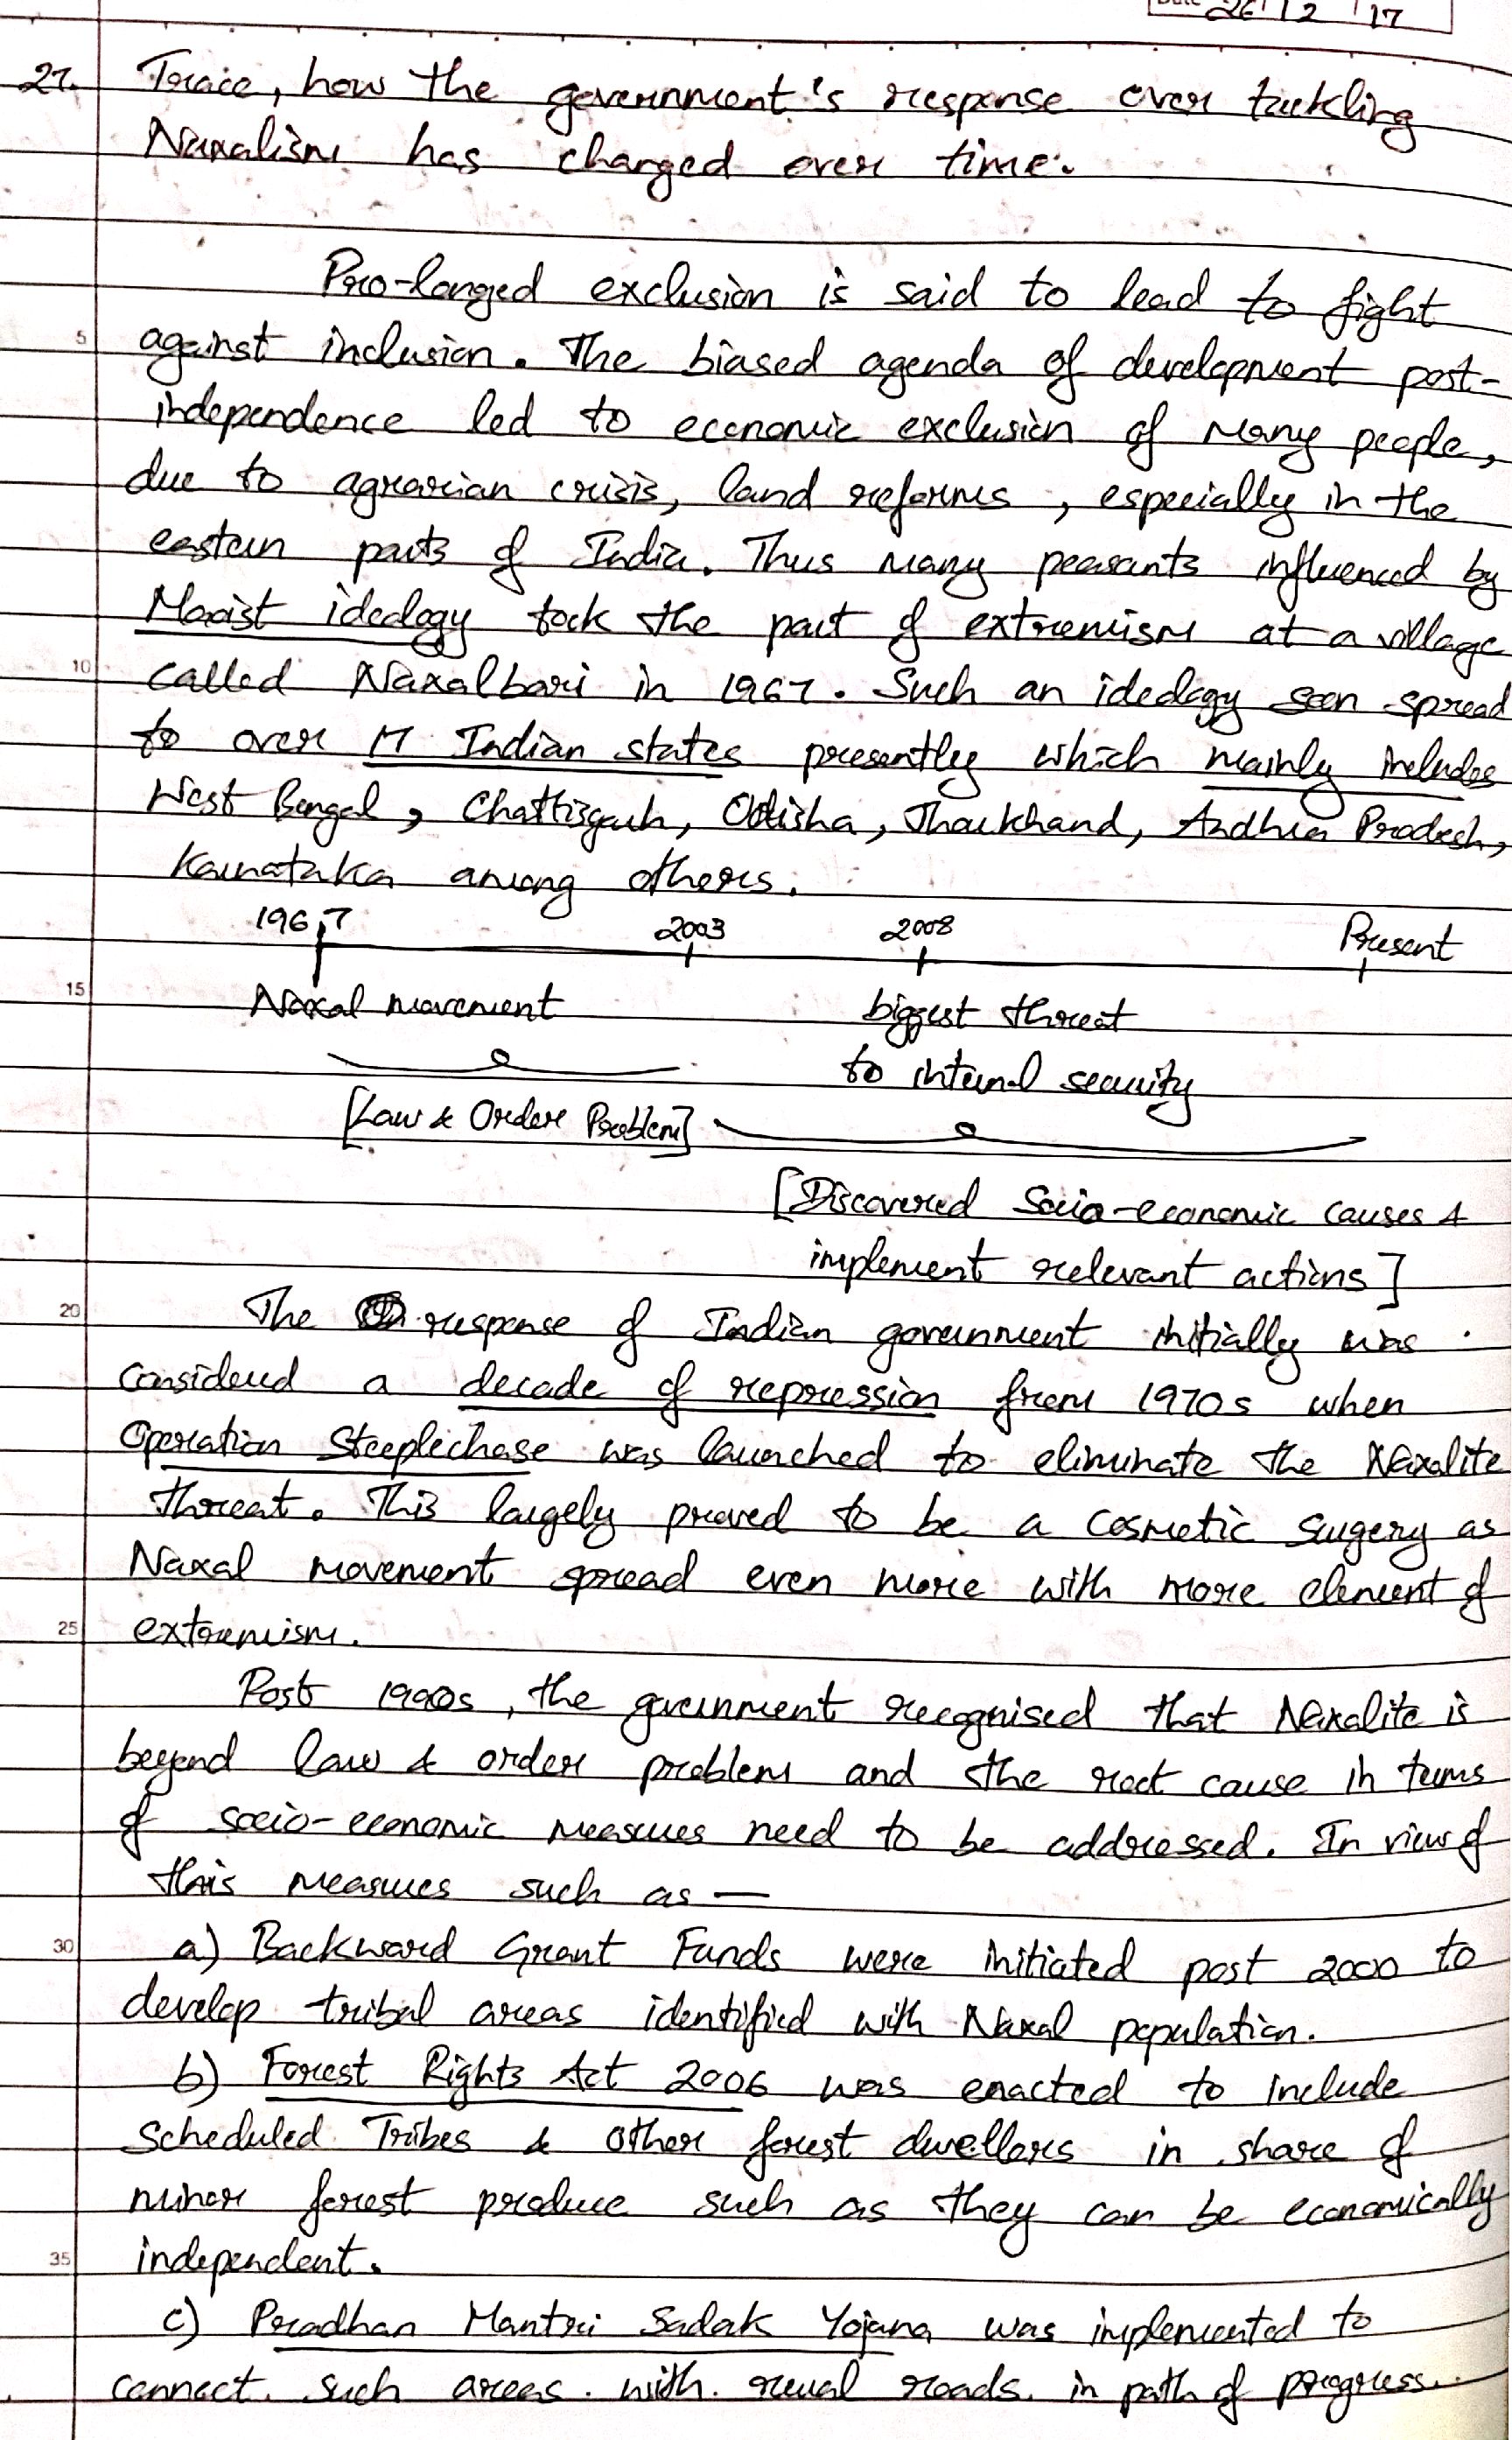 Date 26 12 17
27. Trace, how the government's response over tackling
Naxalism has changed over time.
Pro-longed exclusion is said to lead to fight
5 against inclusion. The biased agenda of development post-
independence led to economic exclusion of many people,
due to agrarian crisis, land reforms, especially in the
eastern parts of India. Thus many peasants influenced by
Maoist ideology took the part of extremism at a village
10 called Naxalbari in 1967. Such an ideology soon spread
to over 17 Indian states presently which mainly includes
West Bengal, Chattisgarh, Odisha, Jharkhand, Andhra Pradesh,
Karnataka among others.
1967 2003 2008 Present
15 Naxal movement biggest threat
to internal security
[Law & Order Problem]
[Discovered Socio-economic causes &
implement relevant actions]
20 The response of Indian government initially was
considered a decade of repression from 1970s when
Operation Steeplechase was launched to eliminate the Naxalite
threat. This largely proved to be a cosmetic surgery as
Naxal movement spread even more with more element of
25 extremism.
Post 1990s, the government recognised that Naxalite is
beyond law & order problem and the root cause in terms
of socio-economic measures need to be addressed. In view of
this measures such as —
30 a) Backward Grant Funds were initiated post 2000 to
develop tribal areas identified with Naxal population.
b) Forest Rights Act 2006 was enacted to include
Scheduled Tribes & other forest dwellers in share of
minor forest produce such as they can be economically
35 independent.
c) Pradhan Mantri Sadak Yojana was implemented to
connect such areas with rural roads in path of progress.